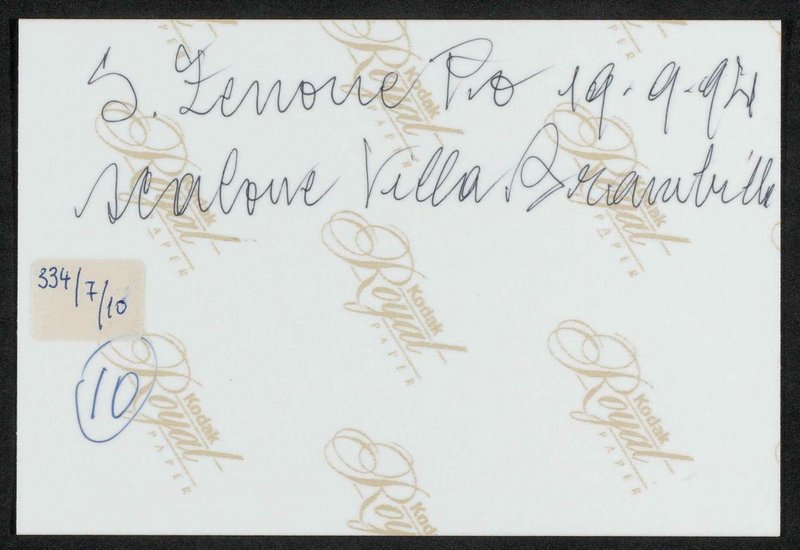 S. Zenone Po 19.9.94
scalone Villa Brambilla
334/7/10
10
Kodak
Royal
PAPER
Kodak
Royal
PAPER
Kodak
Royal
PAPER
Kodak
Royal
PAPER
Kodak
Royal
PAPER
Kodak
Royal
PAPER
Kodak
Royal
PAPER
Kodak
Royal